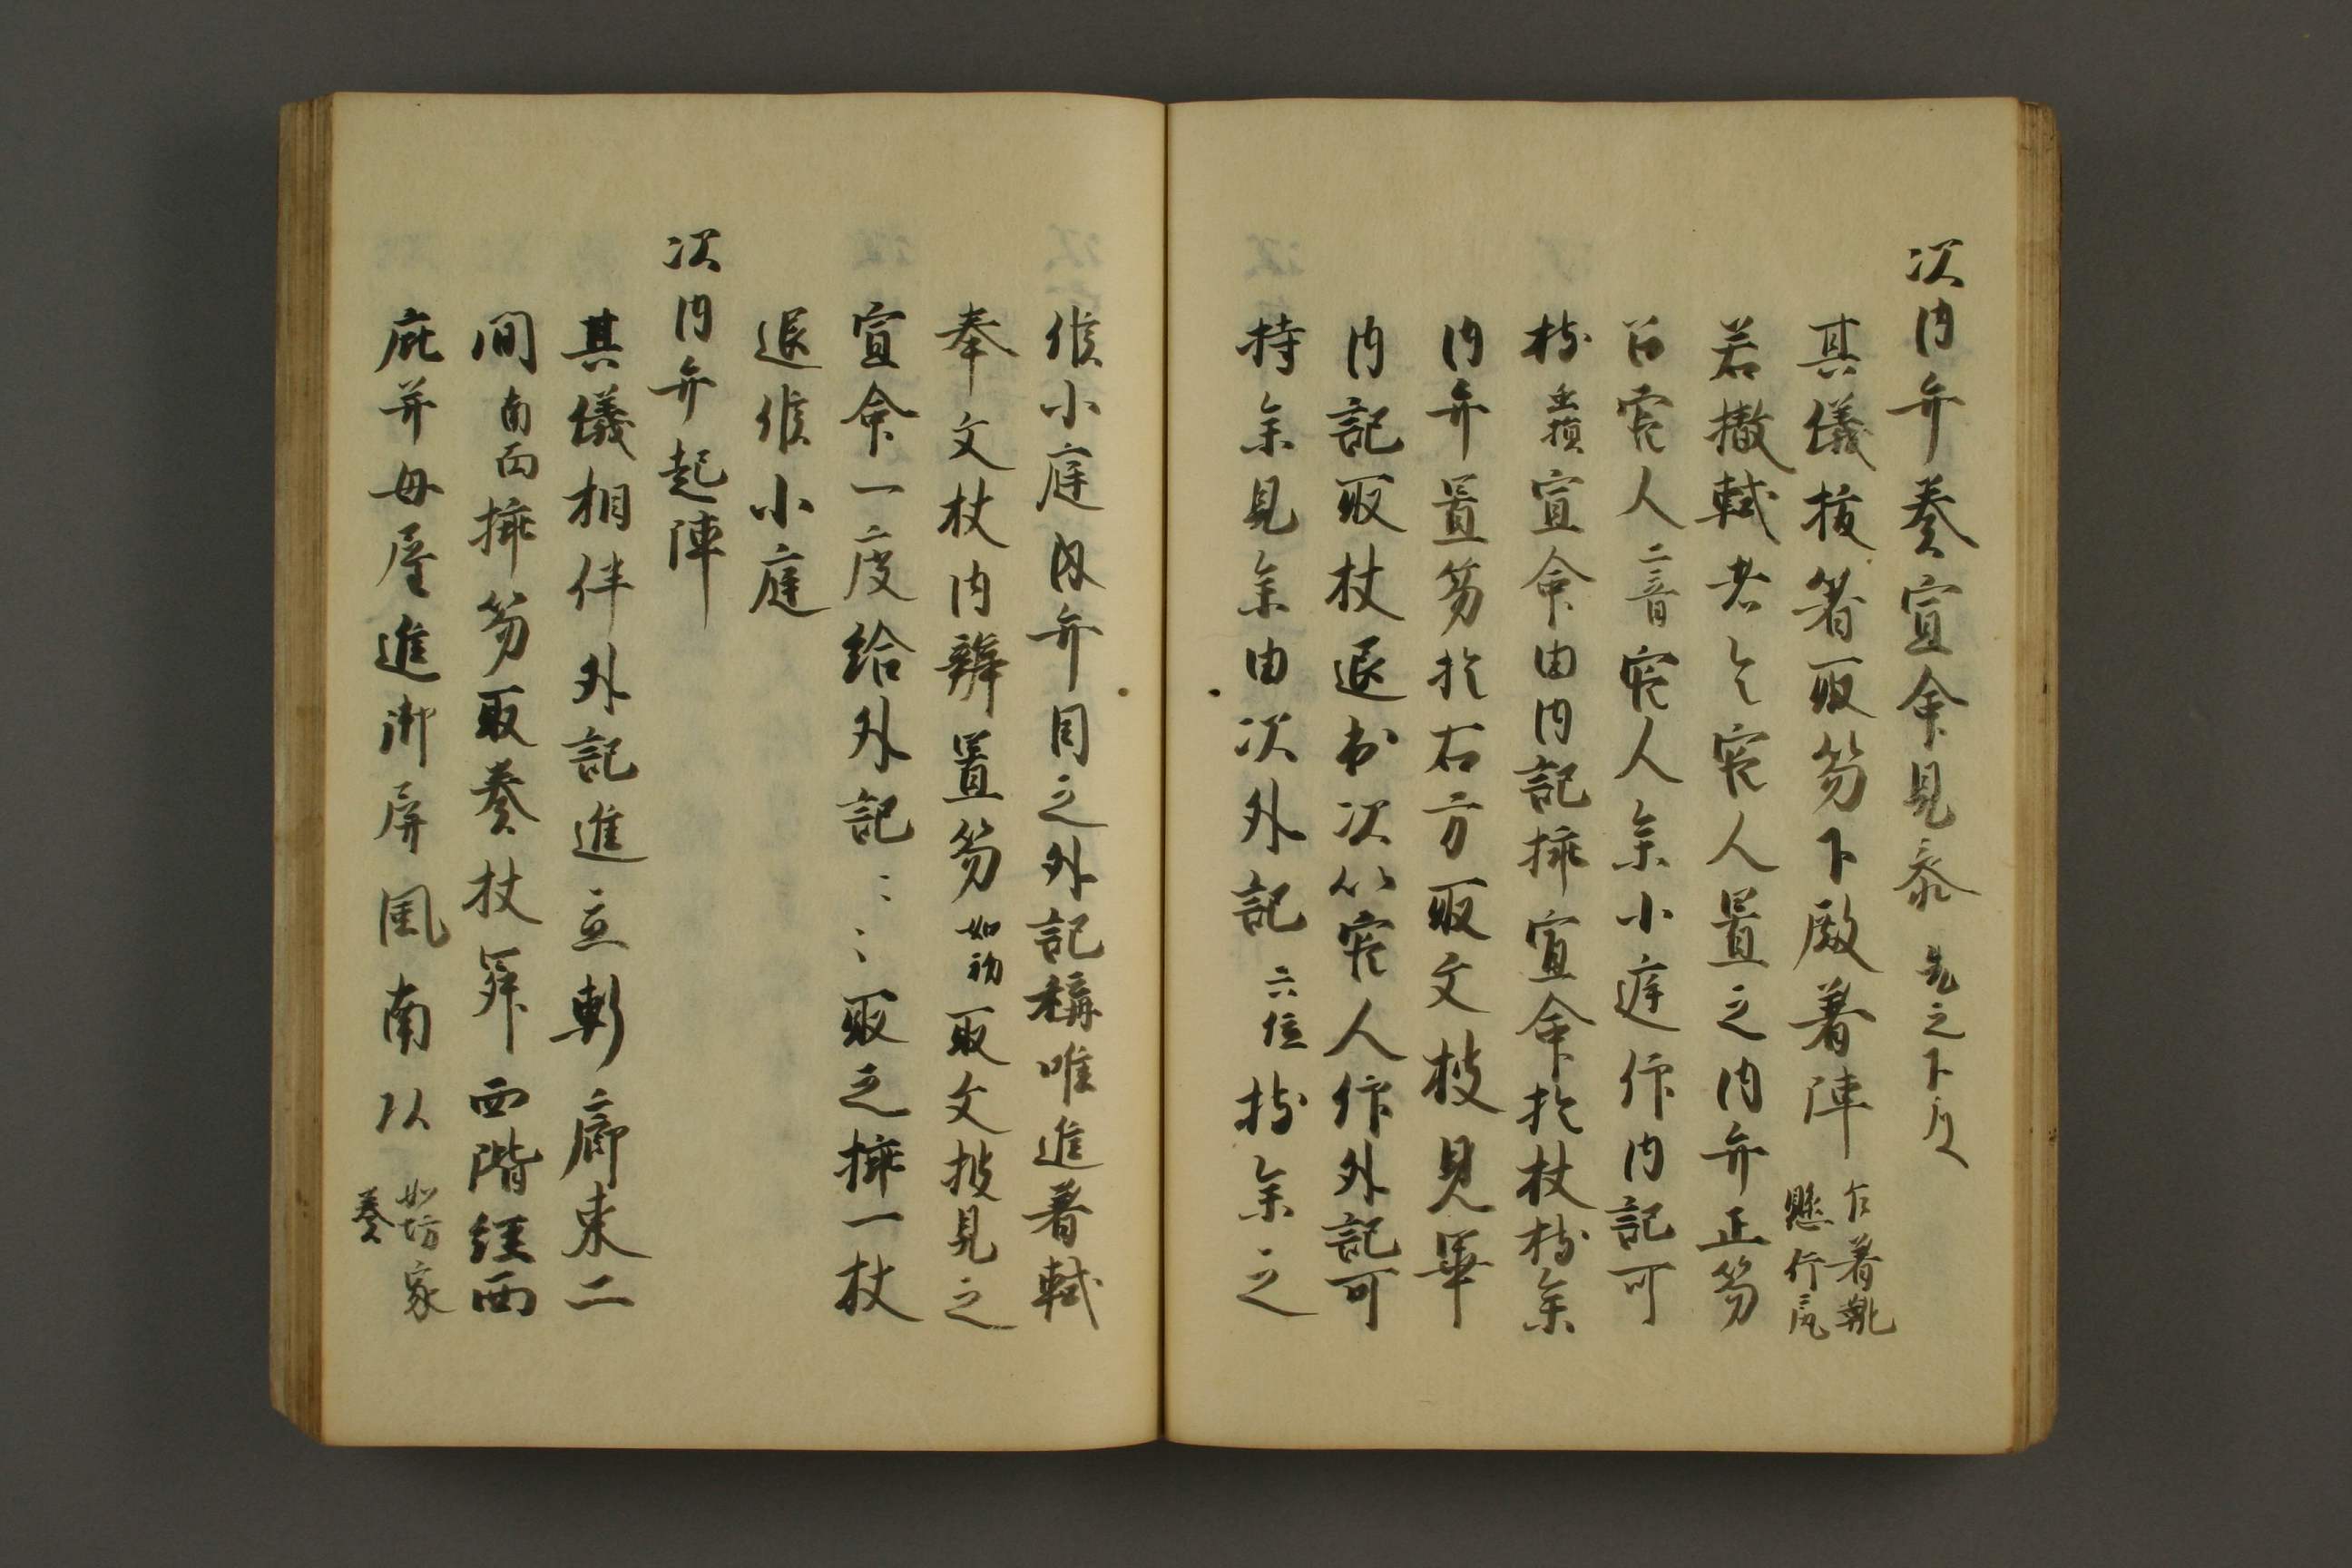 次内弁奏宣命見参 先之下反
其儀抜箸取笏下殿著陣 乍著靴懸行尻
若撤軾者令官人置之内弁正笏
召官人二音官人参小庭仰内記可
持宣命由内記挿宣命於杖持参
内弁置笏於右方取文披見畢
内記取杖退出次以官人仰外記可
持参見参由次外記 六位 持参之
候小庭内弁目之外記称唯進著軾
奉文杖内辨置笏 如初 取文披見之
宣命一度給外記〻〻取之挿一杖
退候小庭
次内弁起陣
其儀相伴外記進立軒廊東二
間 南面 挿笏取奏杖昇西階経西
庇并母屋進御屏風南頭 如坊家奏